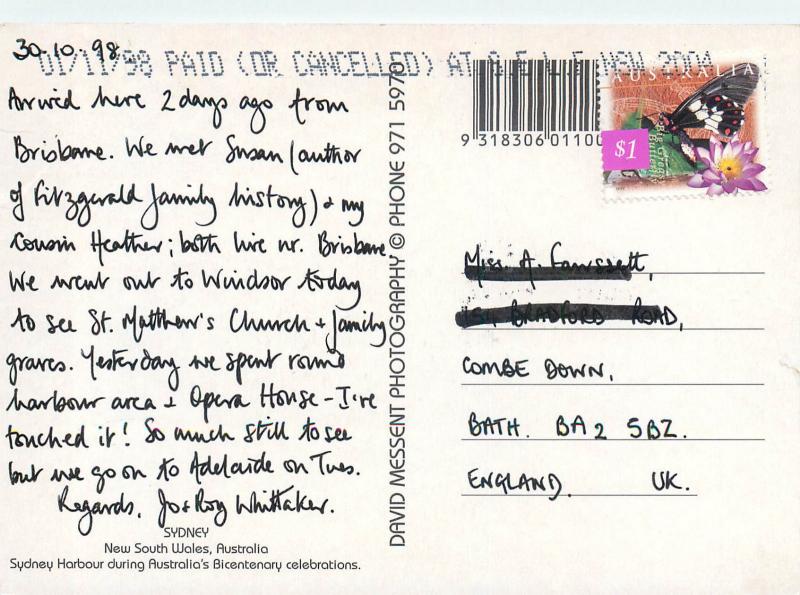 30.10.98
01/11/98 PAID (OR CANCELLED) AT NSW 2004
Arrived here 2 days ago from
Brisbane. We met Susan (author
of Fitzgerald family history) & my
cousin Heather; both live nr. Brisbane.
We went out to Windsor today
to see St. Matthew's Church & family
graves. Yesterday we spent round
harbour area & Opera House - I've
touched it! So much still to see
but we go on to Adelaide on Tues.
Regards, Jo & Roy Whittaker.
SYDNEY
New South Wales, Australia
Sydney Harbour during Australia's Bicentenary celebrations.
DAVID MESSENT PHOTOGRAPHY © PHONE 971 5970
9 318306 01100
AUSTRALIA
$1
Big Greasy
Butterfly
Miss. A.
BRADFORD ROAD,
COMBE DOWN,
BATH. BA2 5BZ.
ENGLAND. UK.